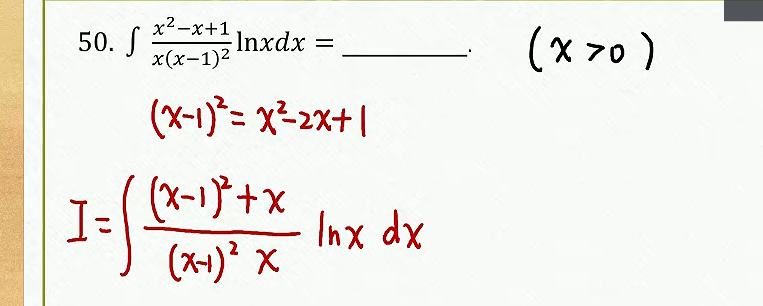 50. ∫ \frac{x²−x+1}{x(x−1)²} lnxdx = ________. (x>0)
(x-1)² = x²-2x+1
I = ∫ \frac{(x-1)²+x}{(x-1)² x} lnx dx